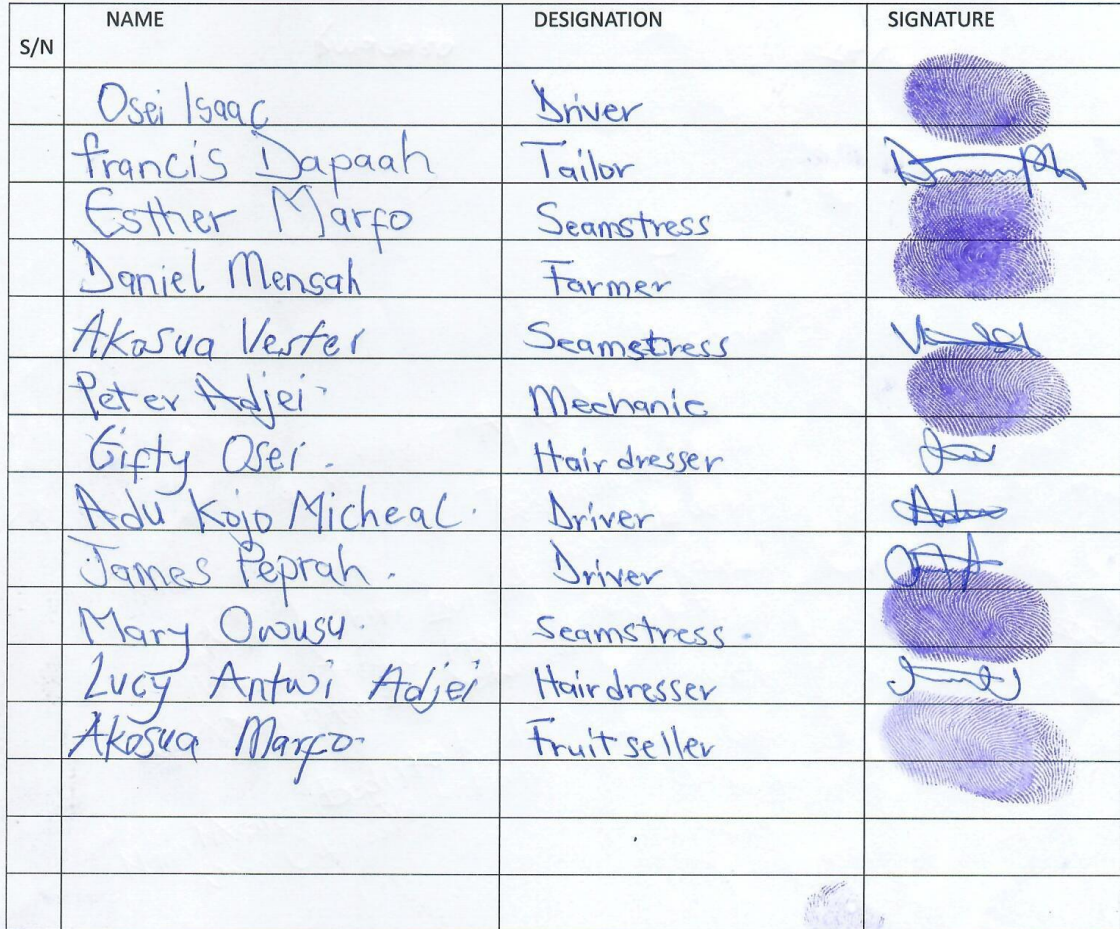 S/N NAME DESIGNATION SIGNATURE
Osei Isaac Driver
Francis Dapaah Tailor
Esther Marfo Seamstress
Daniel Mensah Farmer
Akosua Vester Seamstress
Peter Adjei Mechanic
Gifty Osei. Hairdresser
Adu Kojo Micheal. Driver
James Peprah. Driver
Mary Owusu. Seamstress.
Lucy Antwi Adjei Hairdresser
Akosua Marfo. Fruit seller